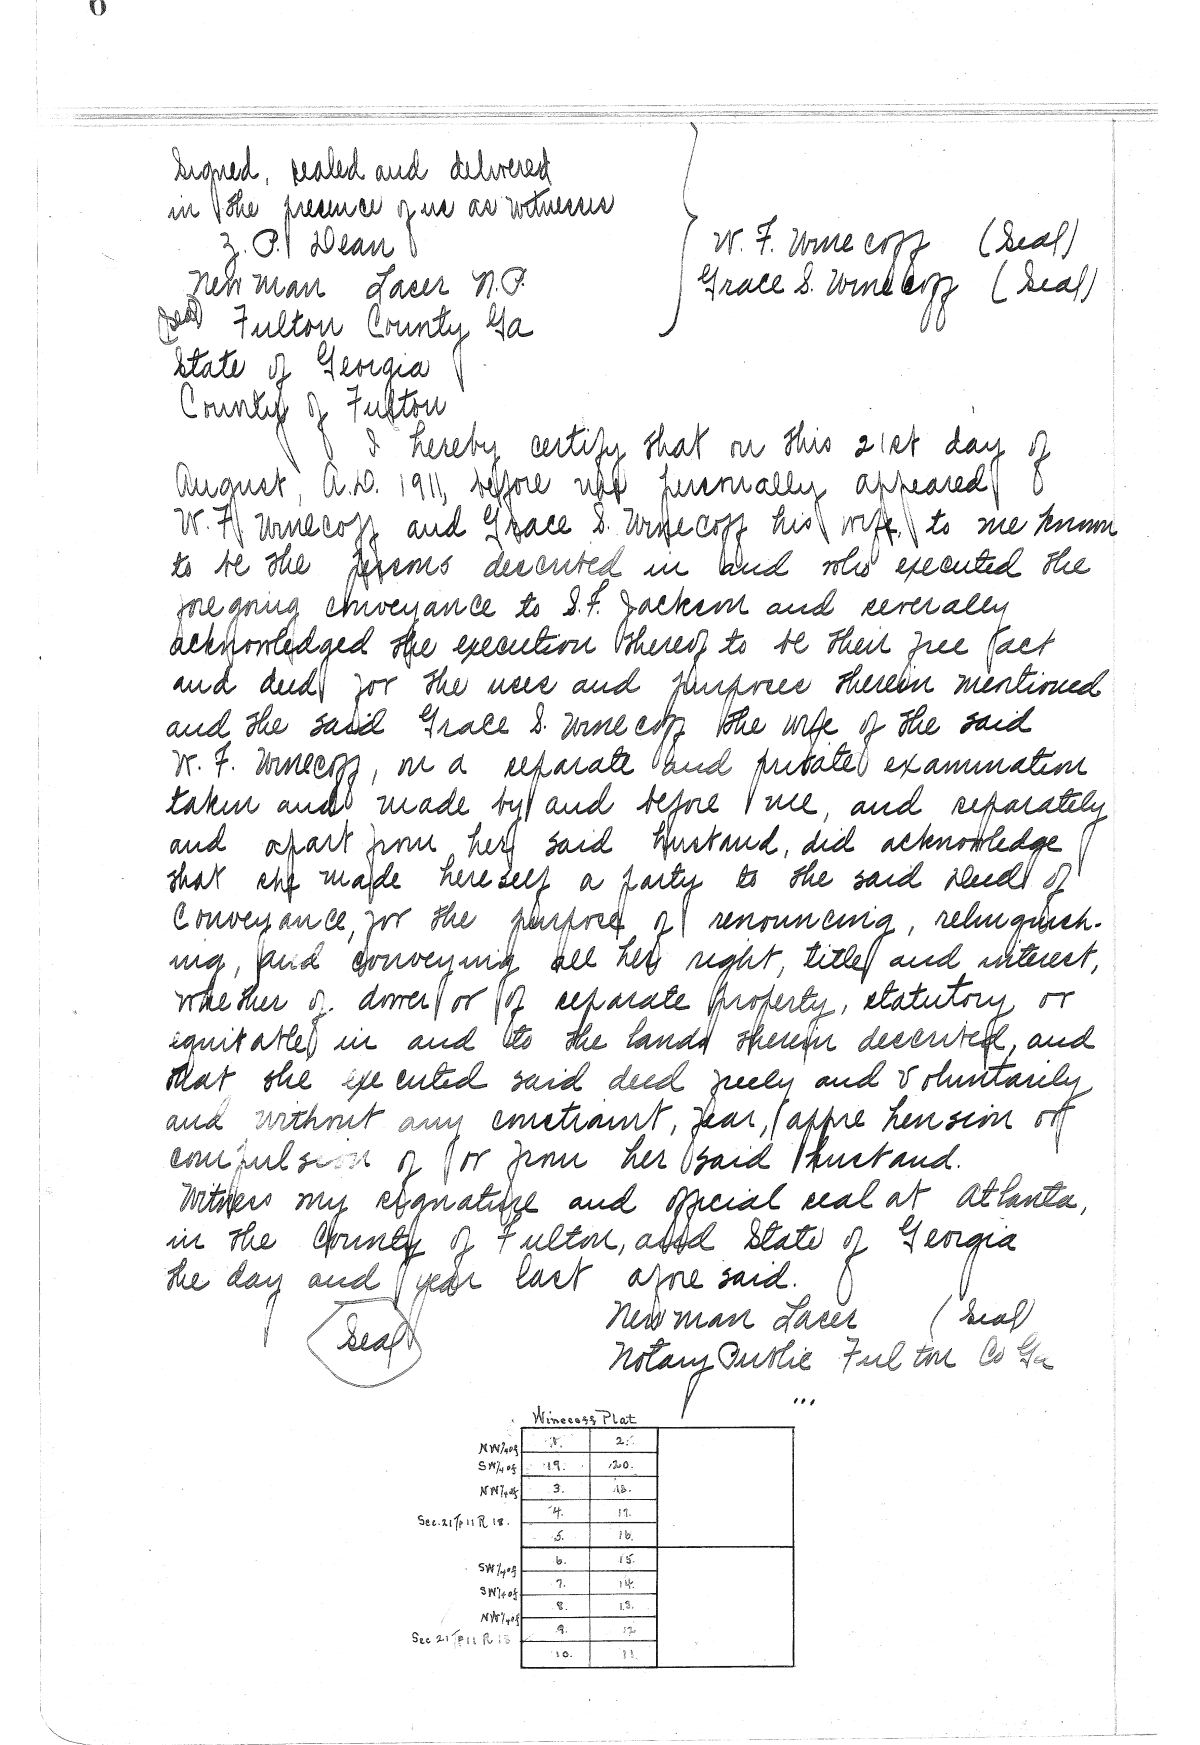 Signed, sealed and delivered
in the presence of us as witnesses
Z. P. Dean
W. F. Winecoff (Seal)
Newman Laser N.P.
Grace S. Winecoff (Seal)
(Seal) Fulton County Ga
State of Georgia
County of Fulton
I hereby certify that on this 21st day of
August, A.D. 1911, before me personally appeared
W. F. Winecoff and Grace S. Winecoff his wife, to me known
to be the persons described in and who executed the
foregoing conveyance to S. F. Jackson and severally
acknowledged the execution thereof to be their free act
and deed for the uses and purposes therein mentioned
and the said Grace S. Winecoff the wife of the said
W. F. Winecoff, on a separate and private examination
taken and made by and before me, and separately
and apart from her said husband, did acknowledge
that she made hereself a party to the said Deed of
Conveyance, for the purpose of renouncing, relinquish-
ing, and conveying all her right, title and interest,
whether of dower or of separate property, statutory or
equitable in and to the lands therein described, and
that she executed said deed freely and voluntarily
and without any constraint, fear, apprehension or
compulsion of or from her said husband.
Witness my signature and official seal at Atlanta,
in the County of Fulton, and State of Georgia
the day and year last aforesaid.
Newman Laser (Seal)
Seal
Notary Public Fulton Co Ga
Winecoss Plat
NW1/4 of 1. 2.
SW1/4 of 19. 20.
NW1/4 of 3. 18.
4. 17.
Sec. 21 Tp 11 R 18.
5. 16.
SW1/4 of 6. 15.
SW1/4 of 7. 14.
8. 13.
NW1/4 of
9. 12
Sec 21 Tp 11 R 18
10. 11.